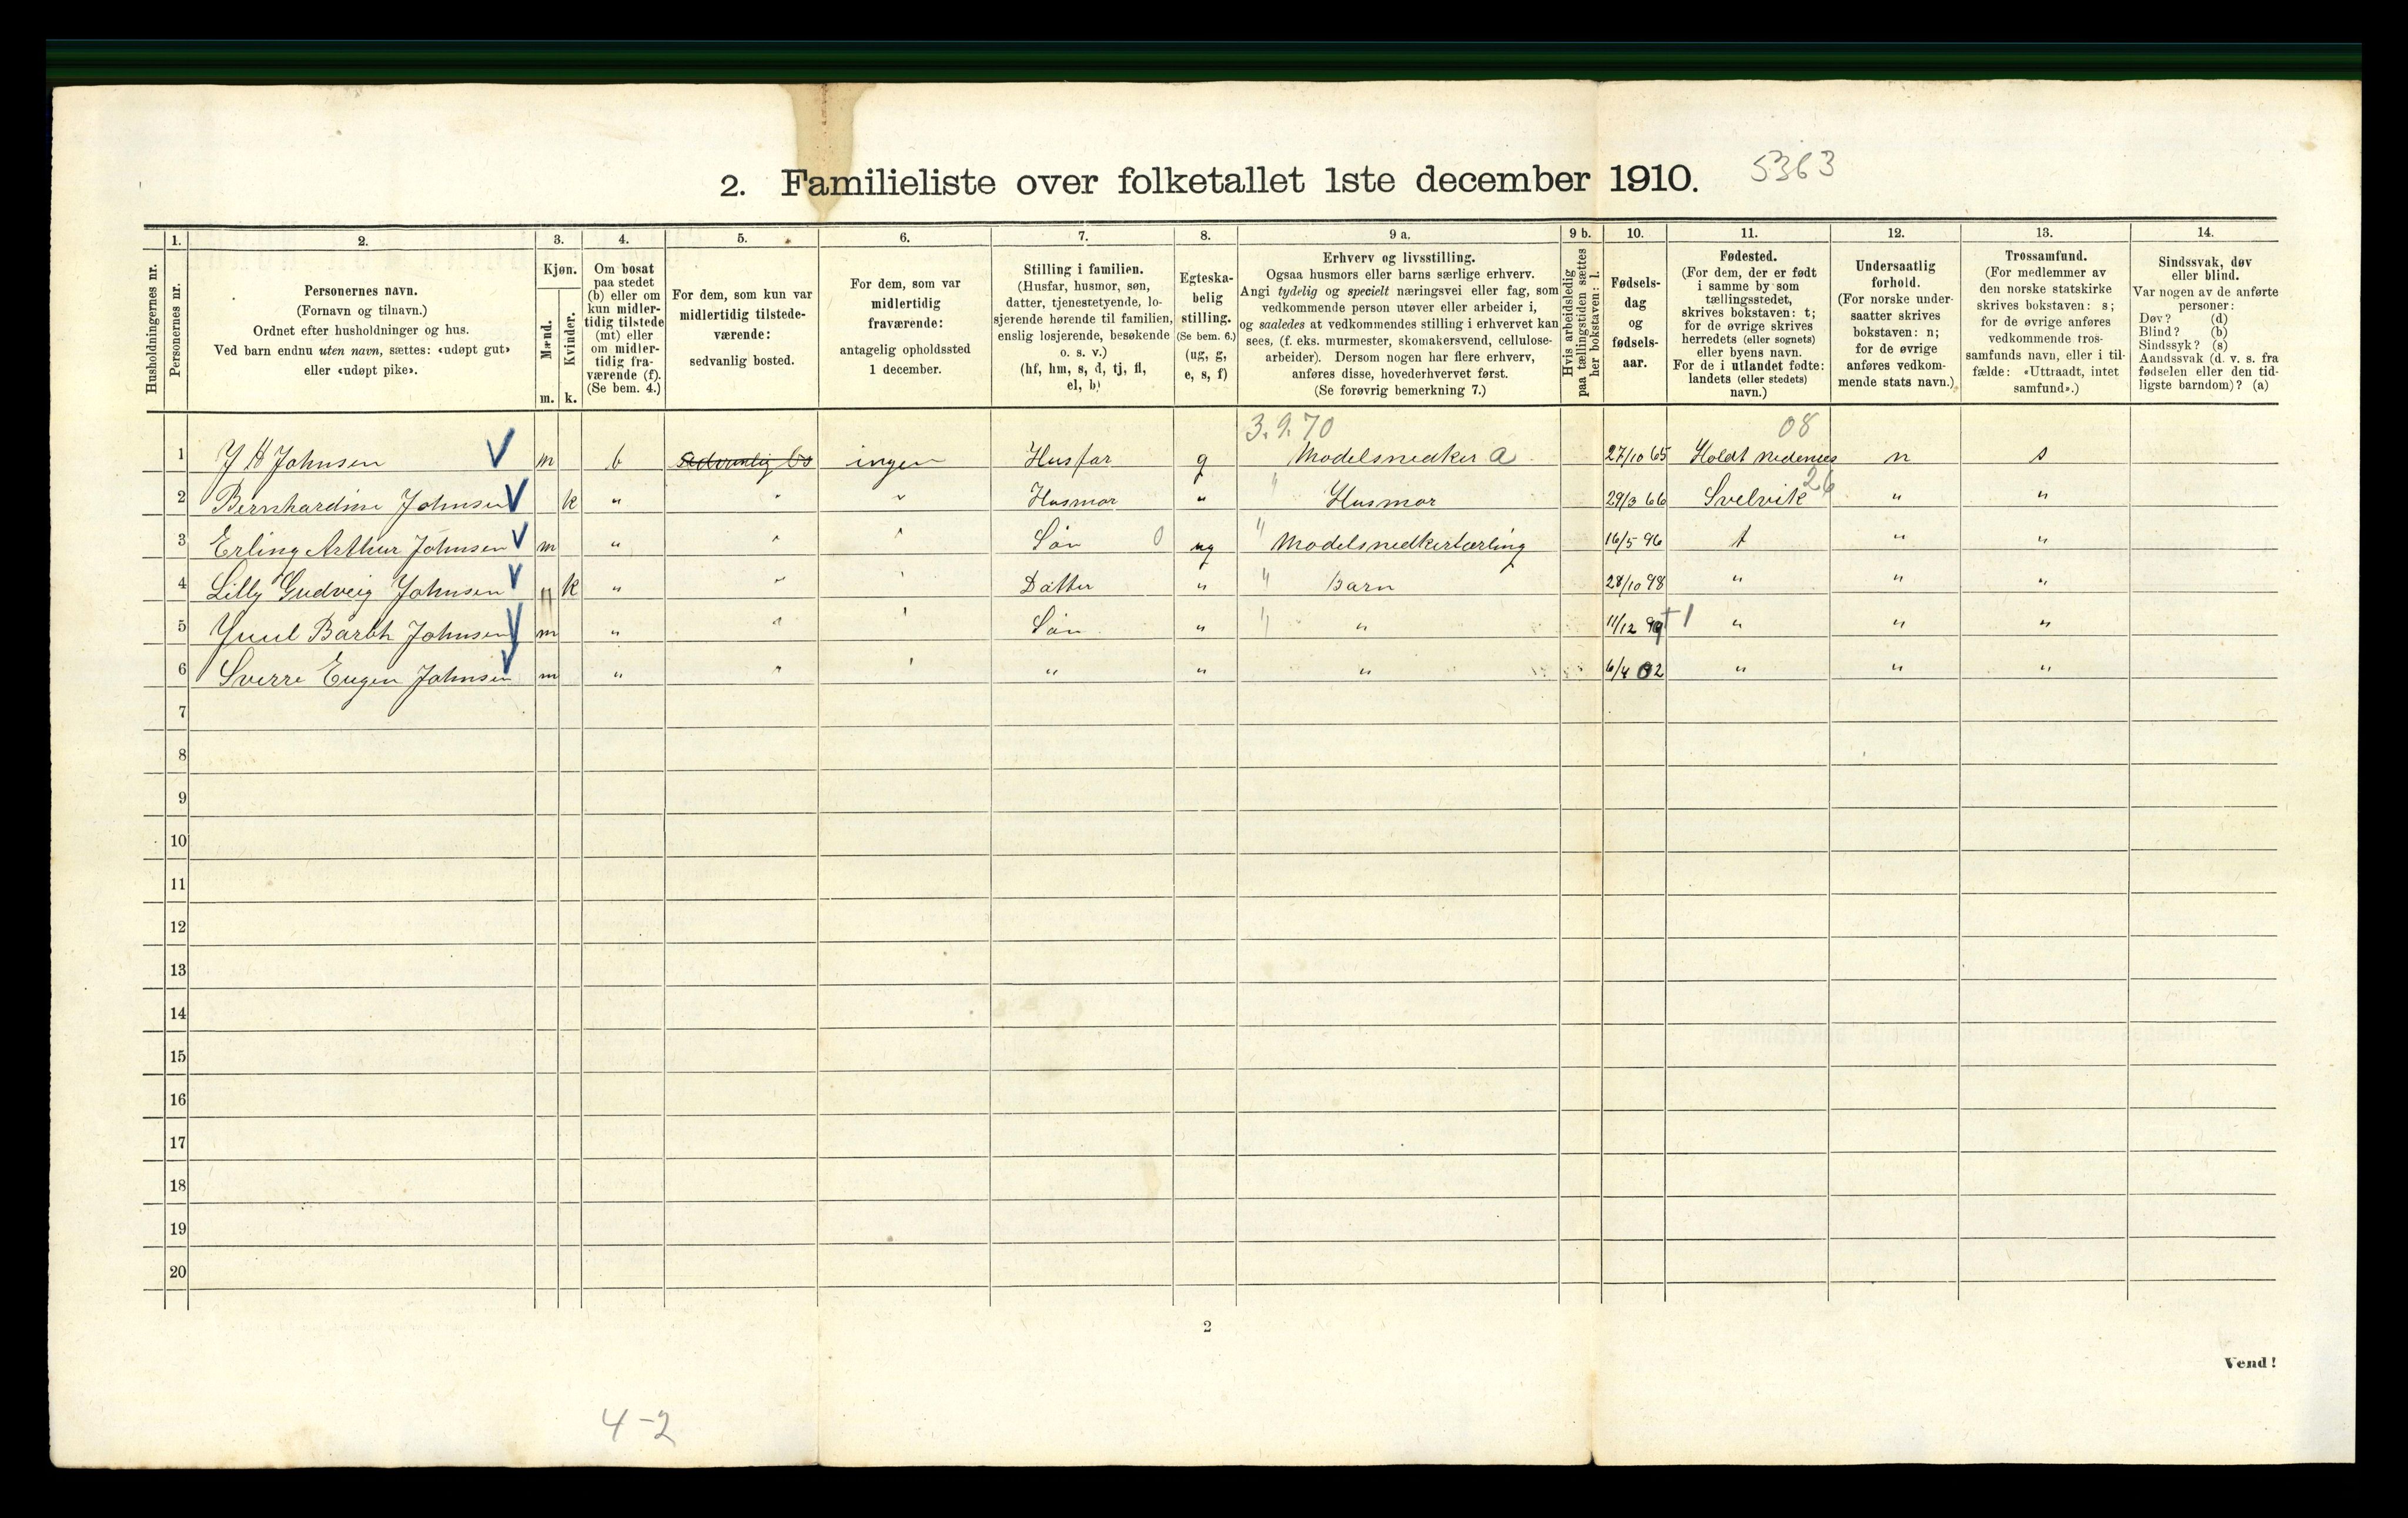 2. Familieliste over folketallet 1ste december 1910. 5363
Husholdningernes nr.
1. Personernes nr.
2. Personernes navn.
(Fornavn og tilnavn.)
Ordnet efter husholdninger og hus.
Ved barn endnu uten navn, sættes: «udøpt gut»
eller «udøpt pike».
3. Kjøn.
Mænd. m.
Kvinder. k.
4. Om bosat
paa stedet
(b) eller om
kun midler-
tidig tilstede
(mt) eller
om midler-
tidig fra-
værende (f).
(Se bem. 4.)
5. For dem, som kun var
midlertidig tilstede-
værende:
sedvanlig bosted.
6. For dem, som var
midlertidig
fraværende:
antagelig opholdssted
1 december.
7. Stilling i familien.
(Husfar, husmor, søn,
datter, tjenestetyende, lo-
sjerende hørende til familien,
enslig losjerende, besøkende
o. s. v.)
(hf, hm, s, d, tj, fl,
el, b)
8. Egteska-
belig
stilling.
(Se bem. 6.)
(ug, g,
e, s, f)
9 a. Erhverv og livsstilling.
Ogsaa husmors eller barns særlige erhverv.
Angi tydelig og specielt næringsvei eller fag, som
vedkommende person utøver eller arbeider i,
og saaledes at vedkommendes stilling i erhvervet kan
sees, (f. eks. murmester, skomakersvend, cellulose-
arbeider). Dersom nogen har flere erhverv,
anføres disse, hovederhvervet først.
(Se forøvrig bemerkning 7.)
9 b. Hvis arbeidsledig
paa tællingstiden sættes
her bokstaven: l.
10. Fødsels-
dag
og
fødsels-
aar.
11. Fødested.
(For dem, der er født
i samme by som
tællingsstedet,
skrives bokstaven: t;
for de øvrige skrives
herredets (eller sognets)
eller byens navn.
For de i utlandet fødte:
landets (eller stedets)
navn.)
12. Undersaatlig
forhold.
(For norske under-
saatter skrives
bokstaven: n;
for de øvrige
anføres vedkom-
mende stats navn.)
13. Trossamfund.
(For medlemmer av
den norske statskirke
skrives bokstaven: s;
for de øvrige anføres
vedkommende tros-
samfunds navn, eller i til-
fælde: «Uttraadt, intet
samfund».)
14. Sindssvak, døv
eller blind.
Var nogen av de anførte
personer:
Døv? (d)
Blind? (b)
Sindssyk? (s)
Aandssvak (d. v. s. fra
fødselen eller den tid-
ligste barndom)? (a)
3.9.70 08
1 J B Johnsen m b Sedvanlig bo ingen Husfar g Modelsnedker a 27/10 65 Holdt Nedenes n s
2 Bernhardine Johnsen k " " " Husmor " " Husmor 29/3 66 Svelvik 26 " "
3 Erling Arthur Johnsen m " " " Søn 0 ug " Modelsnedkerlærling 16/5 96 t " "
4 Lilly Gudveig Johnsen k " " " Datter " " Barn 28/10 98 " " "
5 Juul Barth Johnsen m " " " Søn " " " 11/12 99 +1 " " "
6 Sverre Eugen Johnsen m " " " " " " 6/4 02 " " "
7
8
9
10
11
12
13
14
15
16
17
18
19
20
2
Vend!
4-2